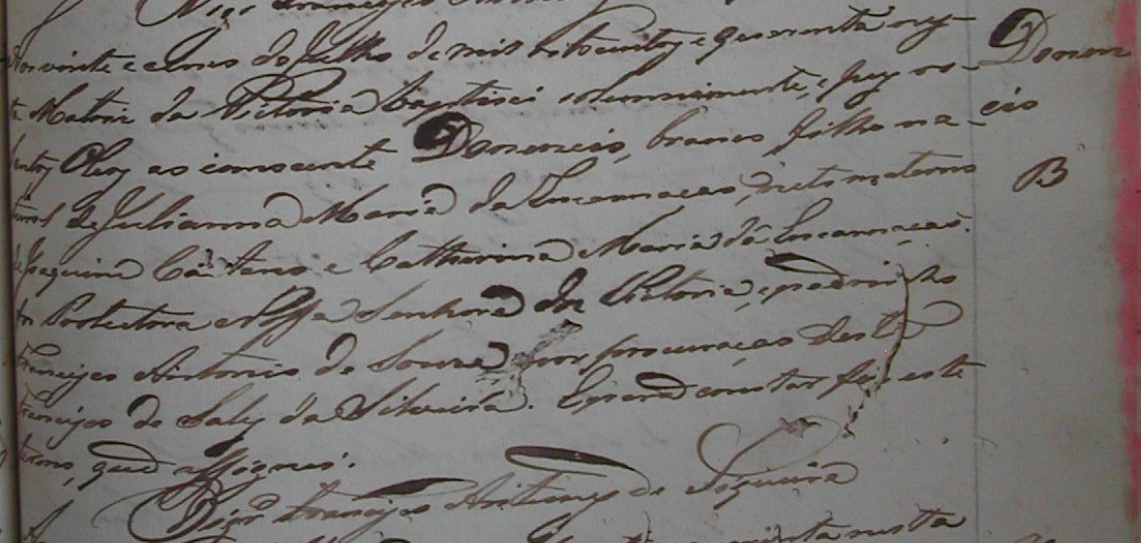 Vigr. Francisco
Aos vinte e cinco de Julho de mil oitocentos e quarenta nes- Donon
ta Matriz da Victoria baptisei solemnemente, e puz os- cio
Santos Oleos ao innocente Dononcio, branco, filho na- B
tural de Julianna Maria da Encarnacao, neto materno
de Joaquim Caetano e Catharina Maria da Encarnação.
Foi Protectora Nossa Senhora da Victoria, e padrinho
Francisco Antonio de Souza por procuraçao deste
Francisco de Sales da Silveira. E para constar fiz este
termo, que assignei.
Vigr. Francisco Antunes de Siqueira
nesta